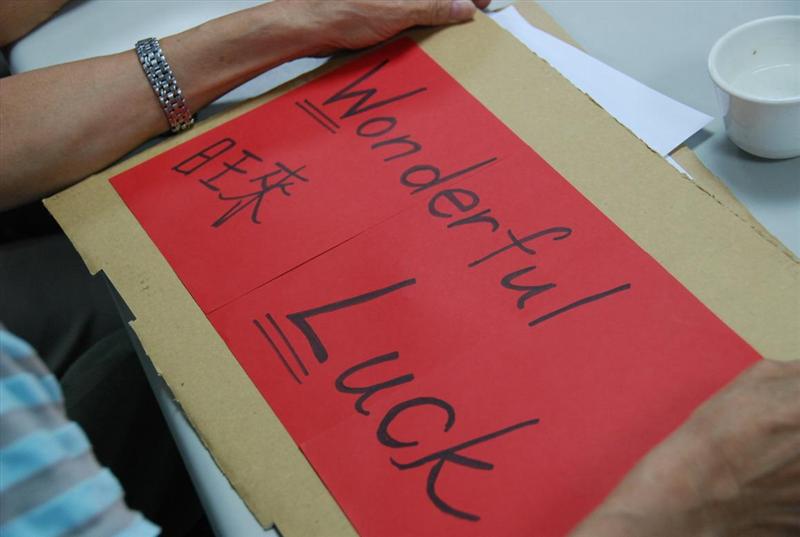 Wonderful
旺來
Luck